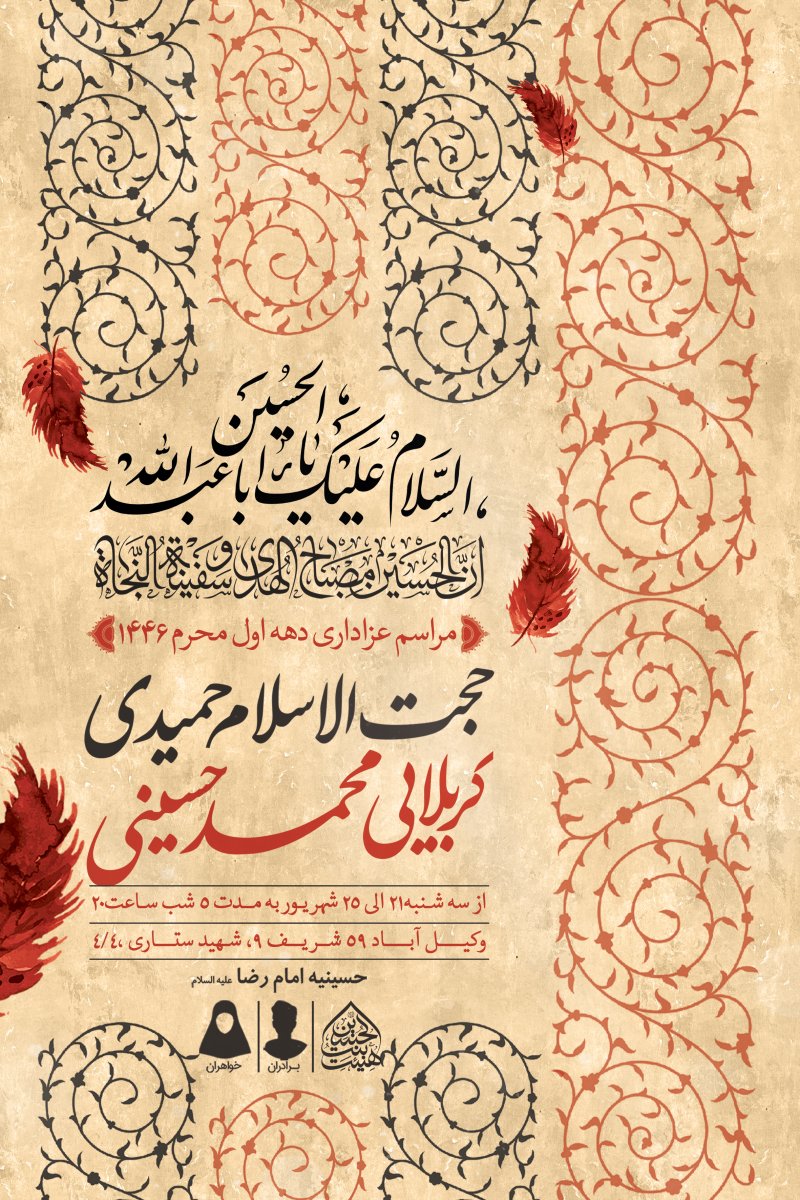 السَّلامُ عَلَیْکَ یا اَبا عَبدِ اللهِ الحُسین
اِنَّ الحُسین مِصباحُ الهُدی وَ سَفینَةُ النَّجاة
مراسم عزاداری دهه اول محرم ۱۴۴۶
حجت الاسلام حمیدی
کربلایی محمد حسینی
از سه شنبه ۲۱ الی ۲۵ شهریور به مدت ۵ شب ساعت ۲۰
وکیل آباد ۵۹ شریف ۹، شهید ستاری ۴/۴،
حسینیه امام رضا علیه السلام
برادران
خواهران